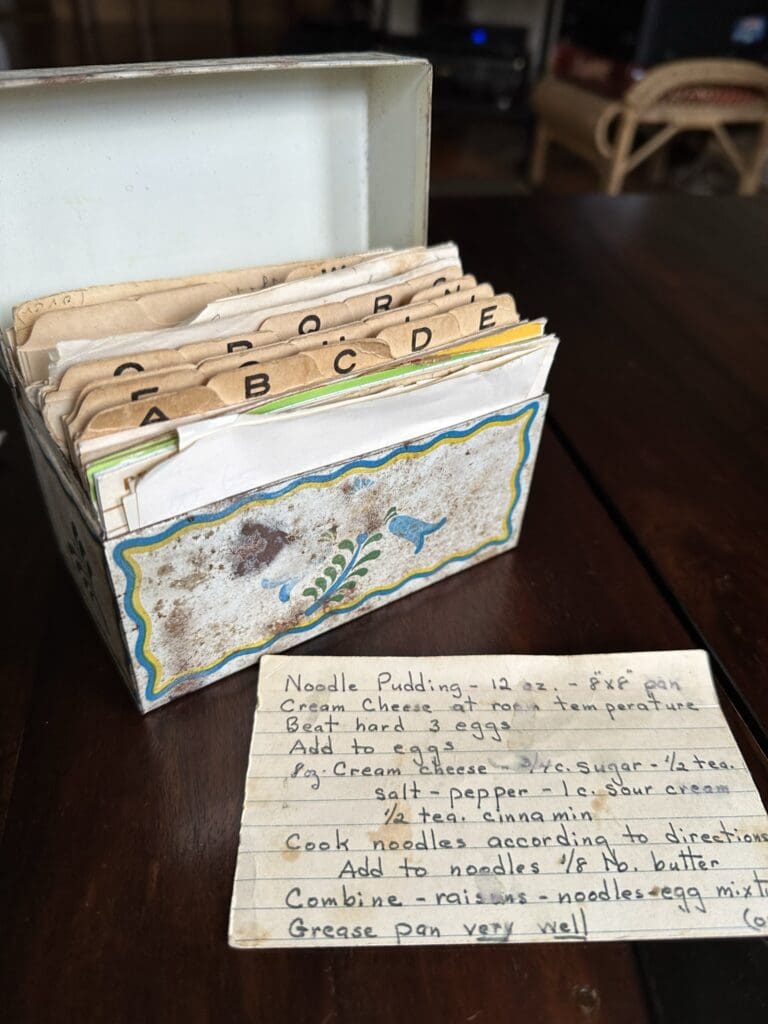 Q
R
A
B
C
D
E
Noodle Pudding - 12 oz. - 8"x8" pan
Cream Cheese at room temperature
Beat hard 3 eggs
Add to eggs
8oz. Cream cheese - 3/4 c. sugar - 1/2 tea.
salt - pepper - 1 c. sour cream
1/2 tea. cinnamin
Cook noodles according to directions
Add to noodles 1/8 lb. butter
Combine - raisins - noodles - egg mixtu
Grease pan very well
(o